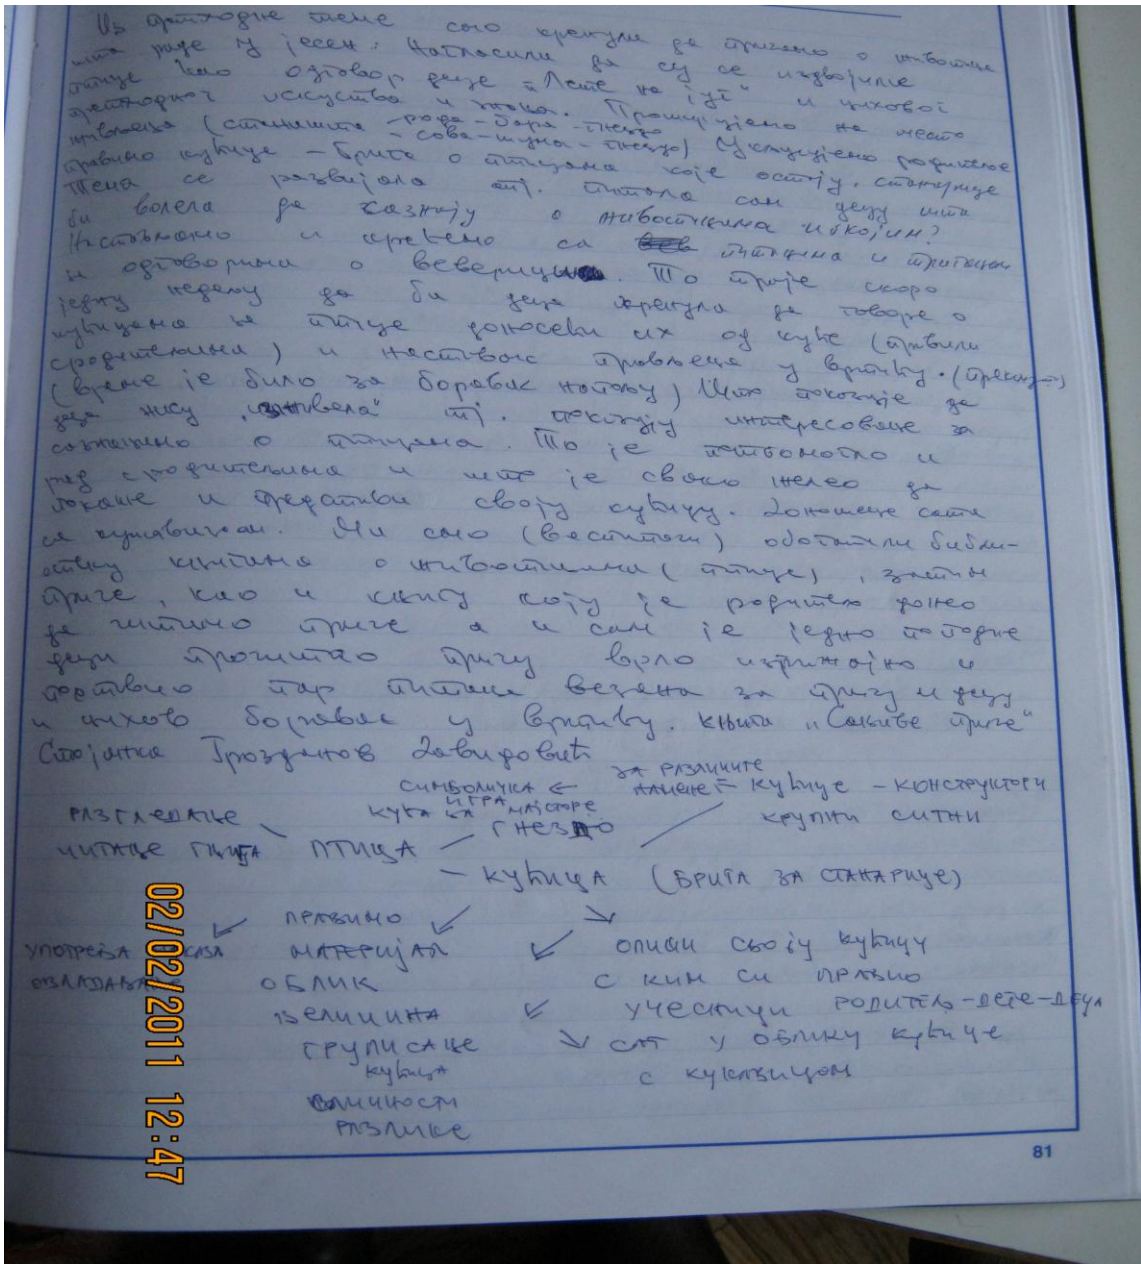 Из претходне теме смо кренули да причамо о животиње
шта раде у јесен. Нагласили да су се издвојиле
птице као одговор деце "Лете на југ" и њиховог
претходног искуства и знања. Проширујемо на место
живљења (станишта - рода - бара - гнездо
- сова - шума - гнездо) Укључујемо родитеље
правимо кућице - Брига о птицама које остају, станарице
Тема се развијала тј. питала сам децу шта
би волела да сазнају о животињама и којим?
Настављамо и крећемо са птицама и причањем
и одговорима о веверицама. То траје скоро
једну недељу да би деца кренула да говоре о
кућицама за птице доносећи их од куће (правили
с родитељима) и наставак прављења у вртићу.
(време је било за боравак напољу) Што показује да
деца нису "изживела" тј. показују интересовање за
сазнањимо о птицама. То је помогло и
рад с родитељима и што је свако желео да
покаже и представи своју кућицу. Доношење сата
са кукавицом. Ми смо (васпитачи) обогатили библи-
отеку књигама о животињама (птице), затим
приче, као и књигу коју је родитељ донео
да читамо приче а и сам је једно поподне
деци прочитао причу врло
пар питања везана за причу и децу
и њихов боравак у вртићу. Књига "Сањиве приче"
Стојанка Грозданов Давидовић
за различите
СИМБОЛИЧКА ← НАМЕНЕ = КУЋИЦЕ - КОНСТРУКТОРИ
ИГРА
РАЗГЛЕДАЊЕ КУЋА ЗА МАЈСТОРЕ КРУПНИ СИТНИ
ГНЕЗДО
ЧИТАЊЕ ПТИЦА
- КУЋИЦА (БРИГА ЗА СТАНАРИЦЕ)
ПРАВИМО
УПОТРЕБА МАТЕРИЈАЛ ОПИШИ СВОЈУ КУЋИЦУ
ОВЛАДАВАЊЕ ОБЛИК С КИМ СИ ПРАВИО
ВЕЛИЧИНА УЧЕСНИЦИ РОДИТЕЉ-ДЕТЕ-ДЕЦА
ГРУПИСАЊЕ САТ У ОБЛИКУ КУЋИЦЕ
КУЋИЦА С КУКАВИЦОМ
СЛИЧНОСТИ
РАЗЛИКЕ
81
02/02/2011 12:47